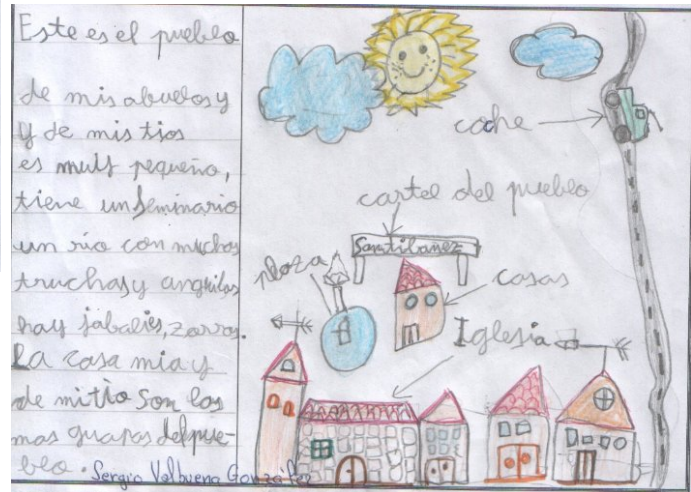 Este es el pueblo
de mis abuelos y
y de mis tios
es muy pequeño,
tiene un Seminario
un rio con muchas
truchas y anguilas
hay jabalies, zorros.
La casa mia y
de mi tio son las
mas guapas del pue-
blo.
Sergio Valbuena González
coche
cartel del pueblo
Santibanez
plaza
casas
Iglesia